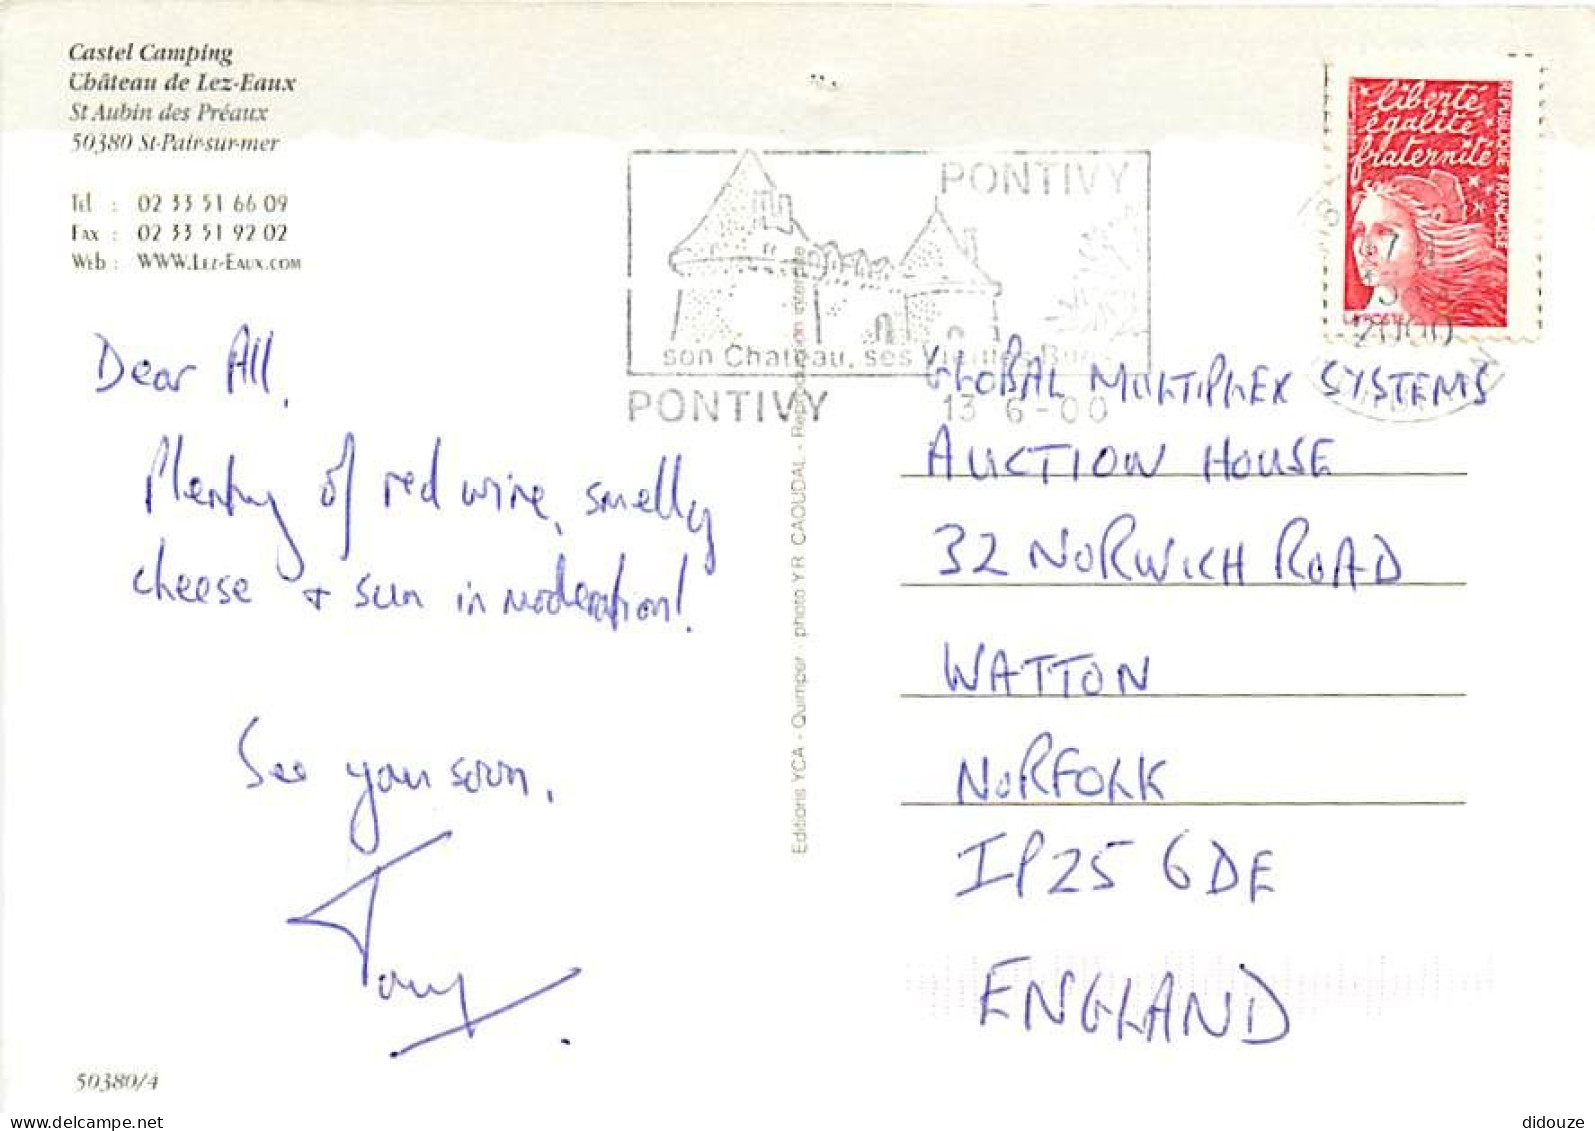 Castel Camping
Château de Lez-Eaux
St Aubin des Préaux
50380 St-Pair-sur-mer
Tel : 02 33 51 66 09
Fax : 02 33 51 92 02
Web : WWW.LEZ-EAUX.COM
Dear All,
Plenty of red wine, smelly
cheese + sun in moderation!
See you soon.
Tony
50380/4
Editions YCA - Quimper - photo Y.R. CAOUDAL - Reproduction interdite
PONTIVY
son Chateau, ses Vieilles Rues
PONTIVY
13 6-00
liberté
égalité
fraternité
REPUBLIQUE FRANCAISE
LA POSTE
2000
GLOBAL MULTIPLEX SYSTEMS
AUCTION HOUSE
32 NORWICH ROAD
WATTON
NORFOLK
IP25 6DE
ENGLAND
didouze
delcampe.net